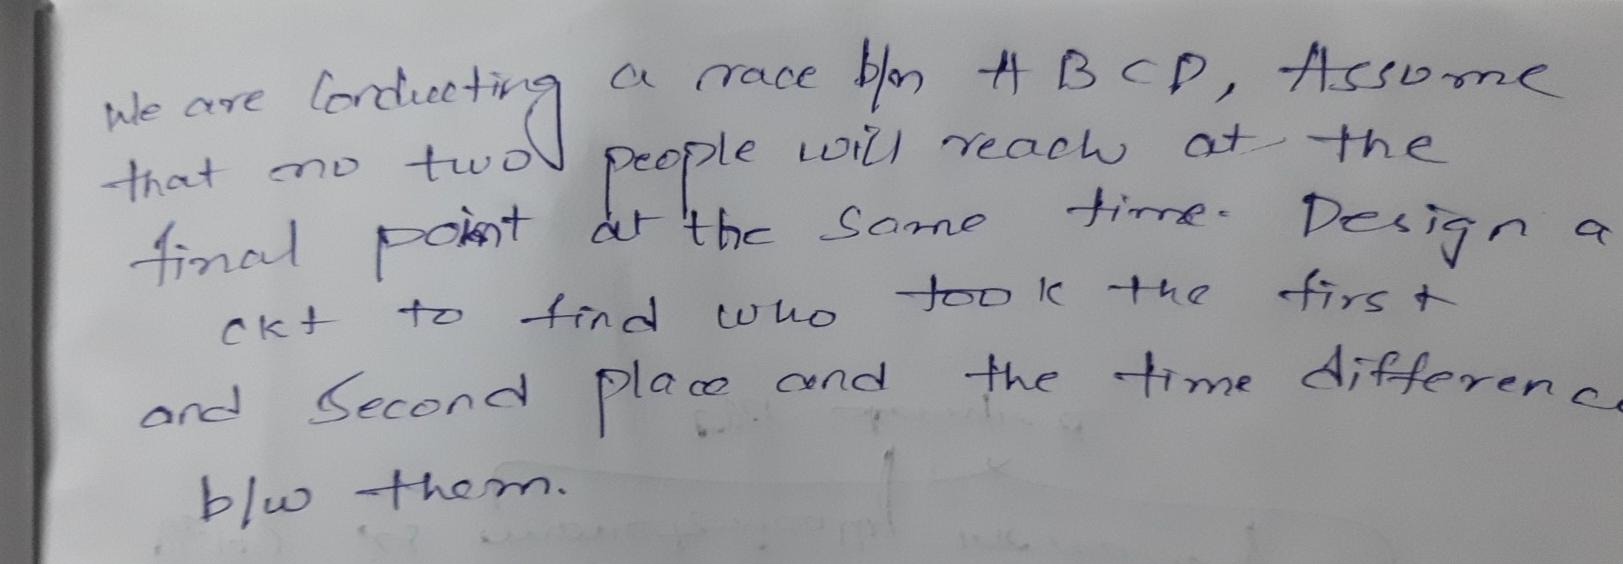 We are Conducting a race b/n A B C D, Assume
that no two people will reach at the
final point at the same time. Design a
ckt to find who took the first
and Second place and the time difference
b/w them.